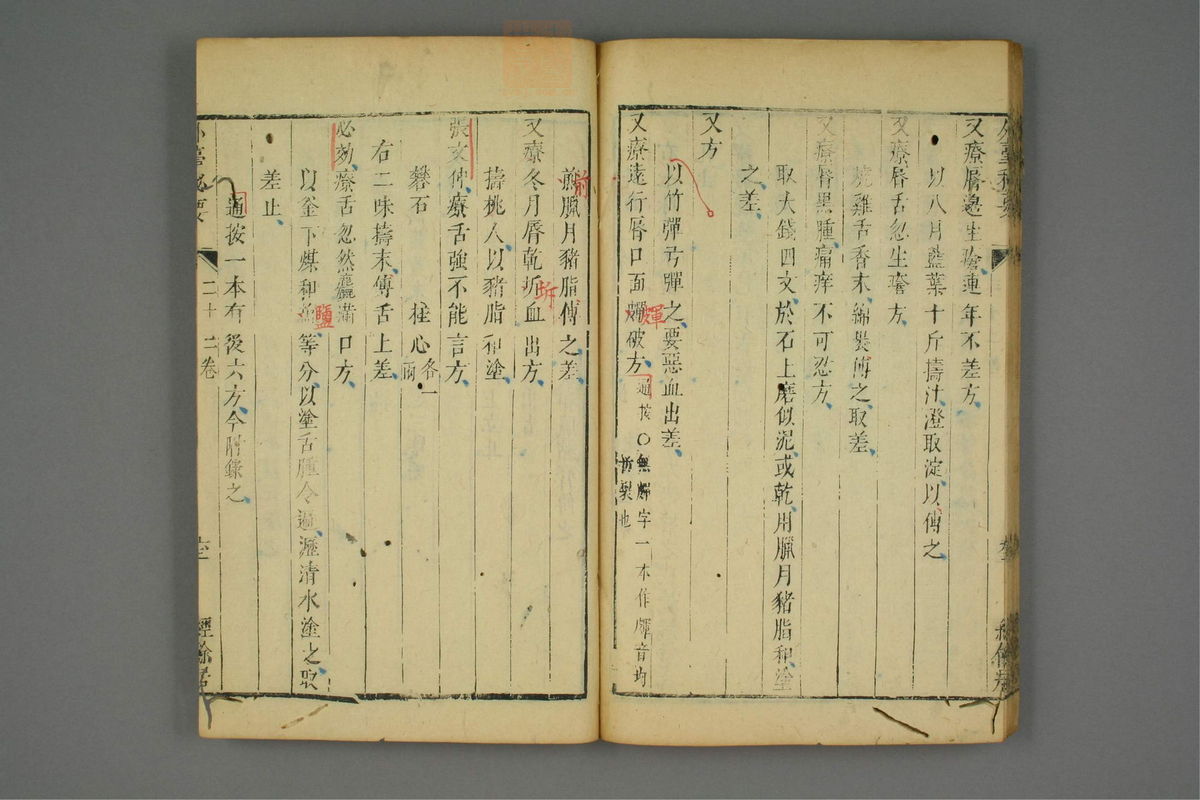 又療脣邊生瘡連年不差方
以八月藍葉十斤擣汁澄取淀以傅之
又療脣舌忽生瘡方
燒雞舌香末綿裝傅之取差
又療脣黑腫痛痒不可忍方
取大錢四文於石上磨似泥或乾用臘月豬脂和塗
之差
又方
以竹彈弓彈之要惡血出差
又療遠行脣口面破方通按無字一本作音均
裂也
煎臘月豬脂傅之差
又療冬月脣乾坼血出方
擣桃人以豬脂和塗
張文仲療舌強不能言方
礬石 桂心各一兩
右二味擣末傅舌上差
必効療舌忽然麤滿口方
以釜下煤和鹽等分以塗舌腫令遍瀝清水塗之取
差止
通按一本有後六方今附錄之
外臺秘要
二十二卷
經餘居